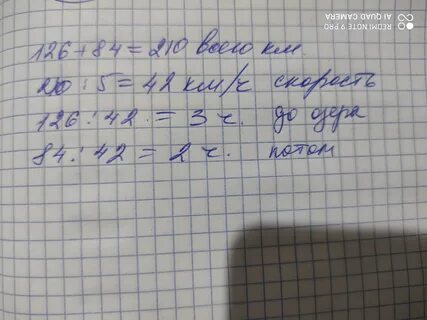 REDMI NOTE 9 PRO
AI QUAD CAMERA
126 + 84 = 210 всего км.
210 : 5 = 42 км/ч скорость
126 : 42 = 3 ч. до озера
84 : 42 = 2 ч. потом